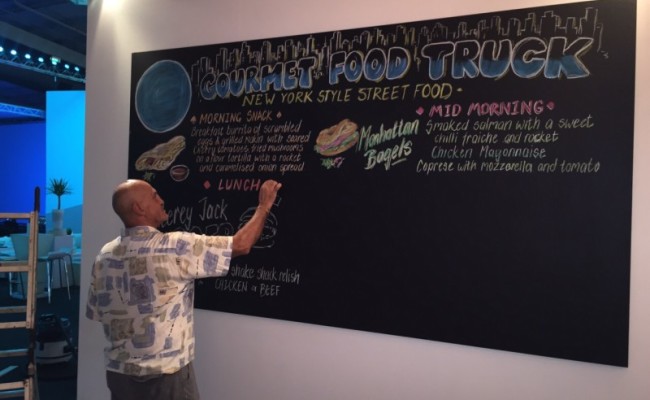 GOURMET FOOD TRUCK
NEW YORK STYLE STREET FOOD
MORNING SNACK
Breakfast burrito of scrambled
eggs & grilled Hakin with seared
cherry tomatoes, fried mushrooms
on a flour tortilla with a rocket
and caramelised onion spread
Manhattan
Bagels
MID MORNING
Smoked salmon with a sweet
chilli fraiche and rocket
Chicken Mayonnaise
Coprese with mozzarella and tomato
LUNCH
Jack
shake shack relish
CHICKEN or BEEF